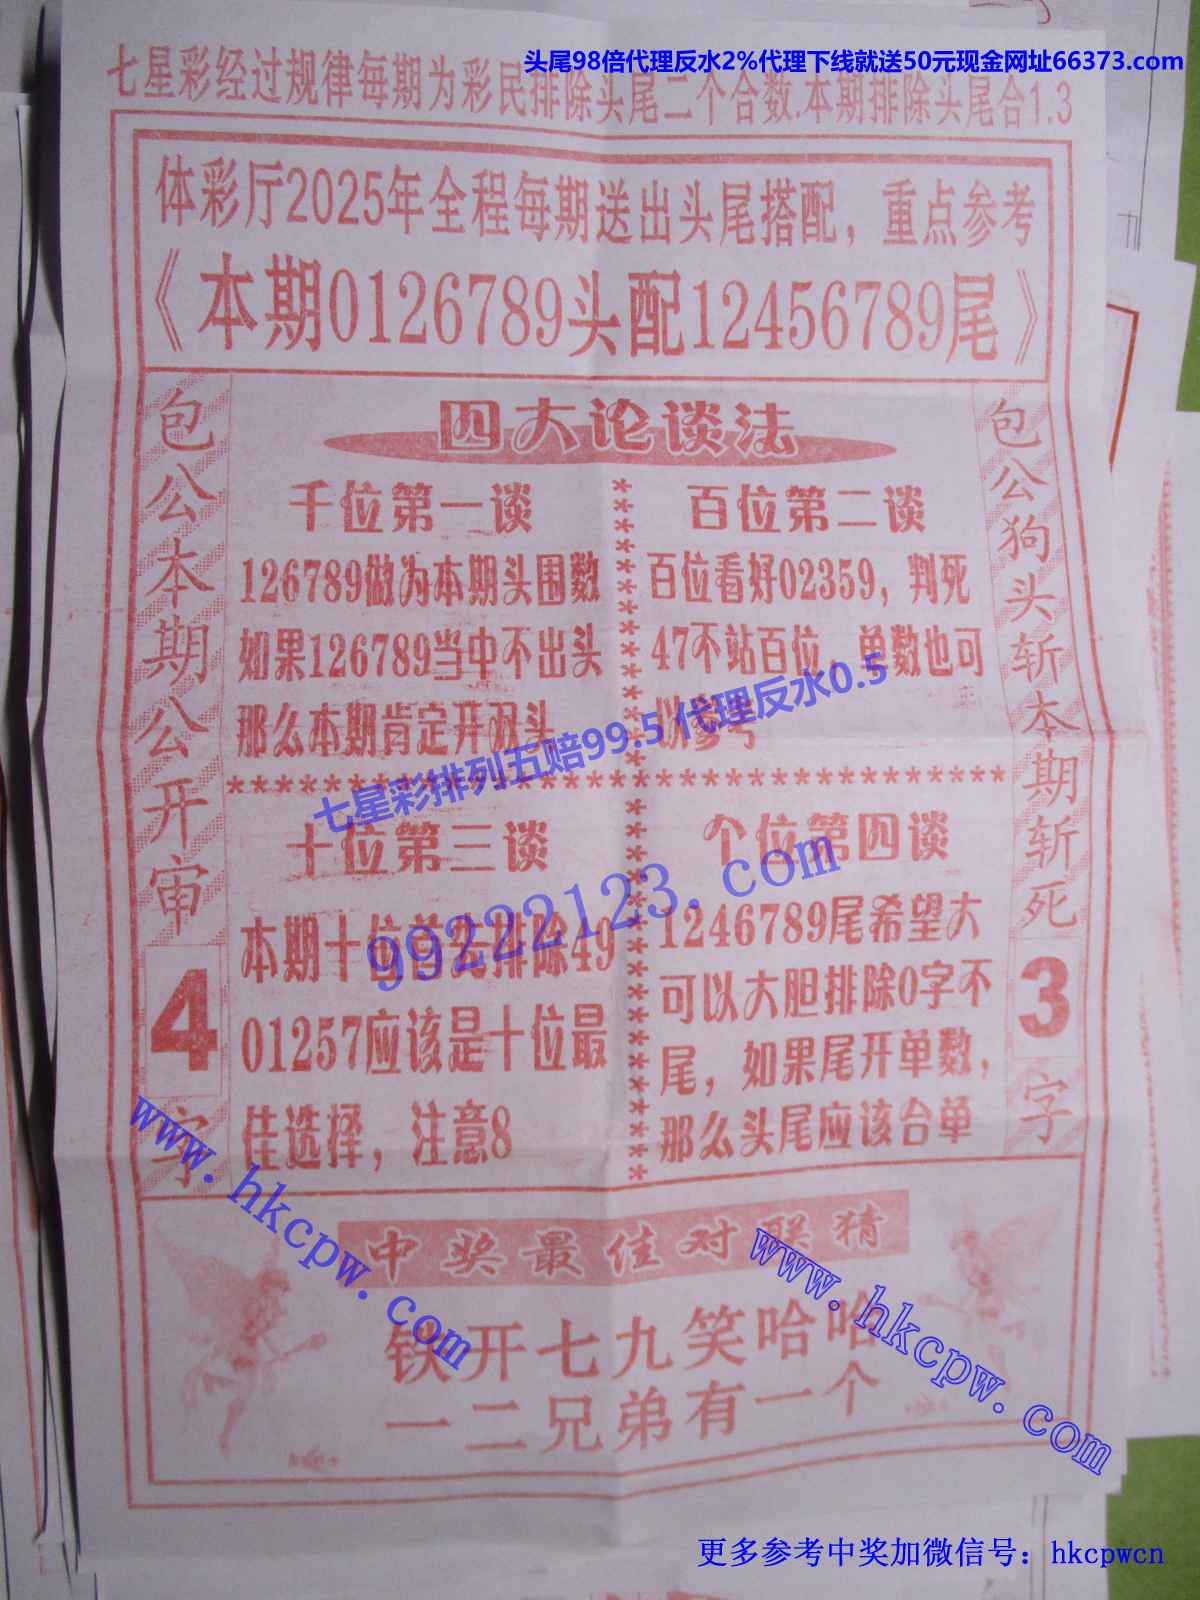 头尾98倍代理反水2%代理下线就送50元现金网址66373.com
七星彩经过规律每期为彩民排除头尾二个合数.本期排除头尾合1.3
体彩厅2025年全程每期送出头尾搭配，重点参考
《本期0126789头配12456789尾》
包公本期公开审4字
四大论谈法
千位第一谈
126789做为本期头围数
如果126789当中不出头
那么本期肯定开双头
百位第二谈
百位看好02359，判死
47不站百位，单数也可
以参考
七星彩排列五赔99.5 代理反水0.5
99222123.com
十位第三谈
本期十位首先排除49
01257应该是十位最
佳选择，注意8
个位第四谈
1246789尾希望大
可以大胆排除0字不
尾，如果尾开单数，
那么头尾应该合单
包公狗头斩本期斩死3字
www.hkcpw.com
中奖最佳对联猜
铁开七九笑哈哈
一二兄弟有一个
www.hkcpw.com
更多参考中奖加微信号：hkcpwcn